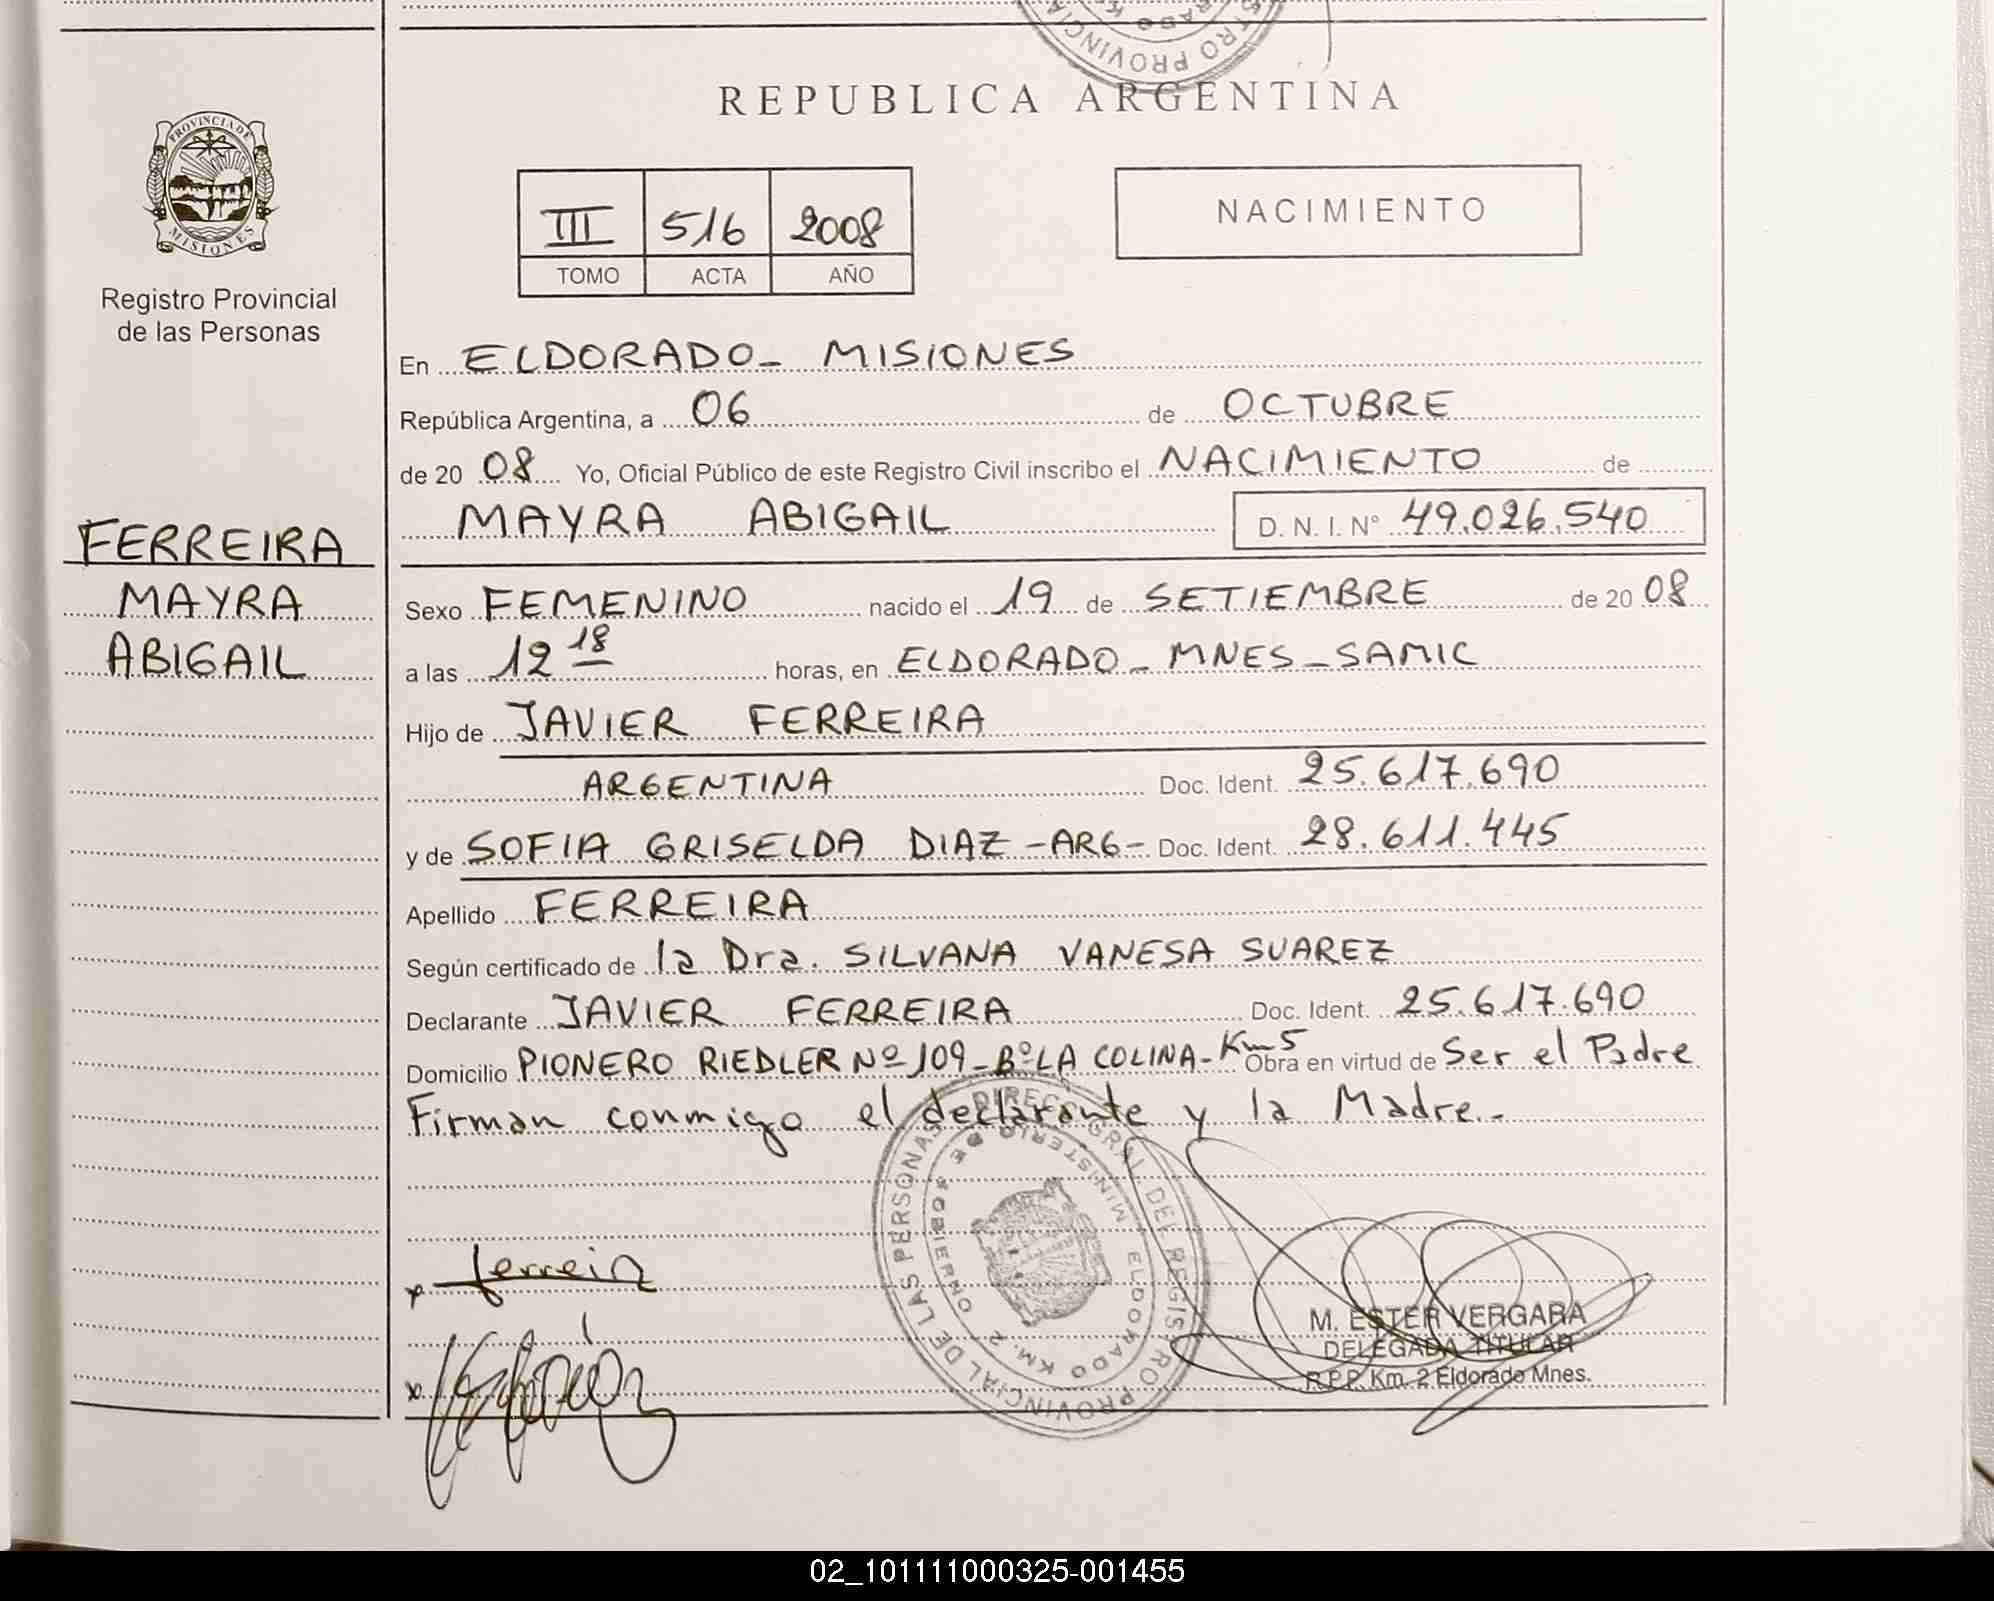 REPUBLICA ARGENTINA
PROVINCIA DE
MISIONES
Registro Provincial
de las Personas
III 516 2008
TOMO ACTA AÑO
NACIMIENTO
En ELDORADO - MISIONES
República Argentina, a 06 de OCTUBRE
de 20 08 Yo, Oficial Público de este Registro Civil inscribo el NACIMIENTO de
MAYRA ABIGAIL D. N. I. N° 49.026.540
FERREIRA
MAYRA
ABIGAIL
Sexo FEMENINO nacido el 19 de SETIEMBRE de 20 08
a las 12 18 horas, en ELDORADO - MNES - SAMIC
Hijo de JAVIER FERREIRA
ARGENTINA Doc. Ident. 25.617.690
y de SOFIA GRISELDA DIAZ - ARG - Doc. Ident. 28.611.445
Apellido FERREIRA
Según certificado de la Dra. SILVANA VANESA SUAREZ
Declarante JAVIER FERREIRA Doc. Ident. 25.617.690
Domicilio PIONERO RIEDLER Nº 109 - Bº LA COLINA - Km 5 Obra en virtud de Ser el Padre
Firman conmigo el declarante y la Madre.-
DIREC. GRAL. DEL REGISTRO PROVINCIAL DE LAS PERSONAS
MINISTERIO DE GOBIERNO
ELDORADO KM. 2
x ferreira
x
M. ESTER VERGARA
DELEGADA TITULAR
R.P.P. Km. 2 Eldorado Mnes.
02_101111000325-001455